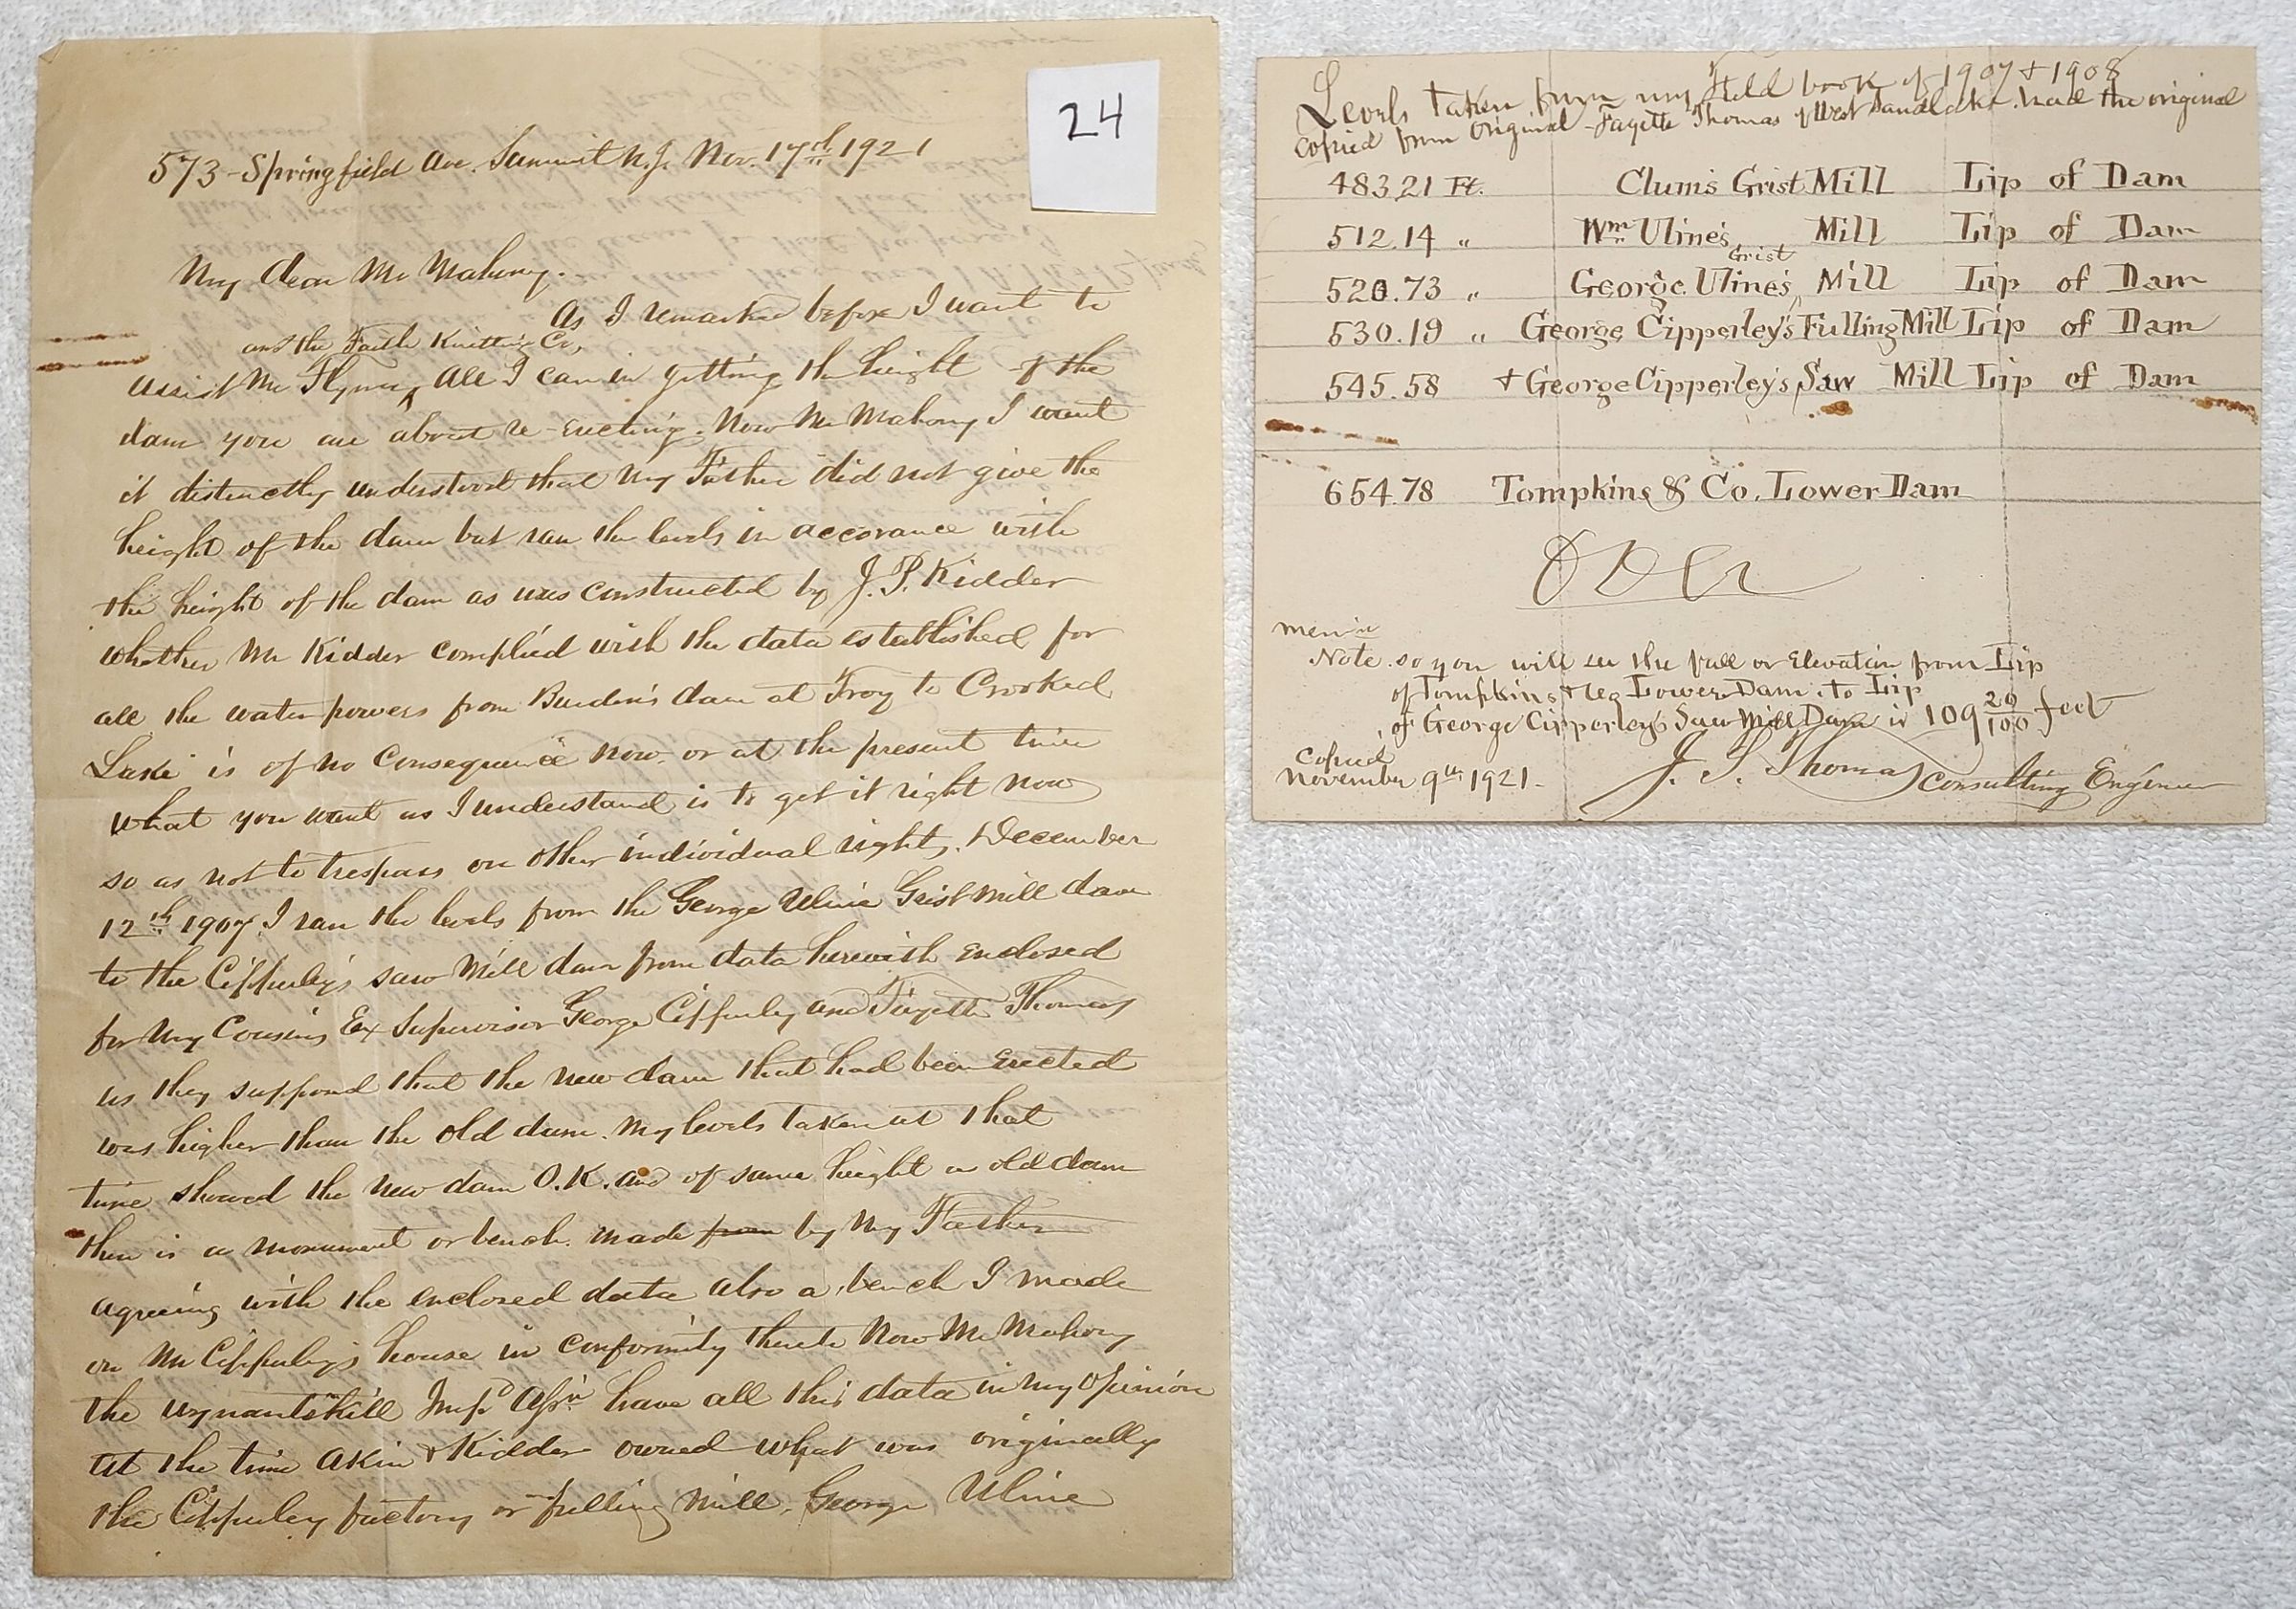 24
573 - Springfield Ave. Summit N.J. Nov. 17th 1921
My Dear Mr Mahony.
As I remarked before I want to
and the Faith Knitting Co,
assist Mr Flynn, all I can in getting the height of the
dam you are about re-erecting. Now Mr Mahony I want
it distinctly understood that my Father did not give the
height of the dam but ran the levels in accorance with
the height of the dam as was constructed by J. P. Kidder
whether Mr Kidder complied with the data established for
all the water powers from Burden's dam at Troy to Crooked
Lake is of no consequence now, or at the present time
what you want as I understand is to get it right now
so as not to trespass on other individual rights. December
12th 1907. I ran the levels from the George Uline Grist Mill dam
to the Cipperley's saw Mill dam from data herewith enclosed
for my Cousins Ex Supervisor George Cipperley and Fayette Thomas
as they supposed that the new dam that had been erected
was higher than the old dam. My levels taken at that
time showed the new dam O.K. and of same height as old dam
there is a monument or bench made from by my Father
agreeing with the enclosed data also a bench I made
on Mr Cipperley's house in conformity thereto Now Mr Mahony
the Wynantskill Imp'd Ass'n have all this data in my opinion
at the time Akin & Kidder owned what was originally
the Cipperley factory or fulling mill. George Uline
Levels taken from my field book of 1907 & 1908
copied from original - Fayette Thomas of West Sandlake had the original
483.21 Ft. Clum's Grist Mill Lip of Dam
512.14 " Wm Uline's Mill Lip of Dam
Grist
520.73 " George Uline's Mill Lip of Dam
530.19 " George Cipperley's Fulling Mill Lip of Dam
545.58 + George Cipperley's Saw Mill Lip of Dam
654.78 Tompkins & Co. Lower Dam
over
Note. so you will see the fall or Elevation from Lip
of Tompkins & Lower Dam to Lip
of George Cipperley's Saw Mill Dam is 109 20/100 feet
Copied
November 9th 1921.
J. S. Thomas Consulting Engineer